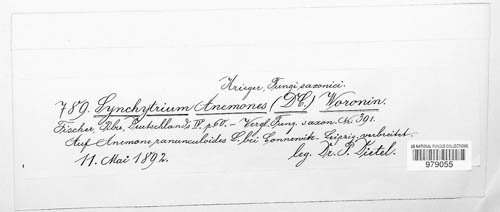 Krieger, Fungi saxonici.
789. Synchytrium Anemones (DC.) Woronin.
Fischer, Pilze, Deutschlands IV. p. 50. – Vergl. Fung. saxon. No. 391.
Auf Anemone ranunculoides L. bei Connewitz-Leipzig verbreitet.
11. Mai 1892.
leg. Dr. P. Dietel.
US NATIONAL FUNGUS COLLECTIONS
979055